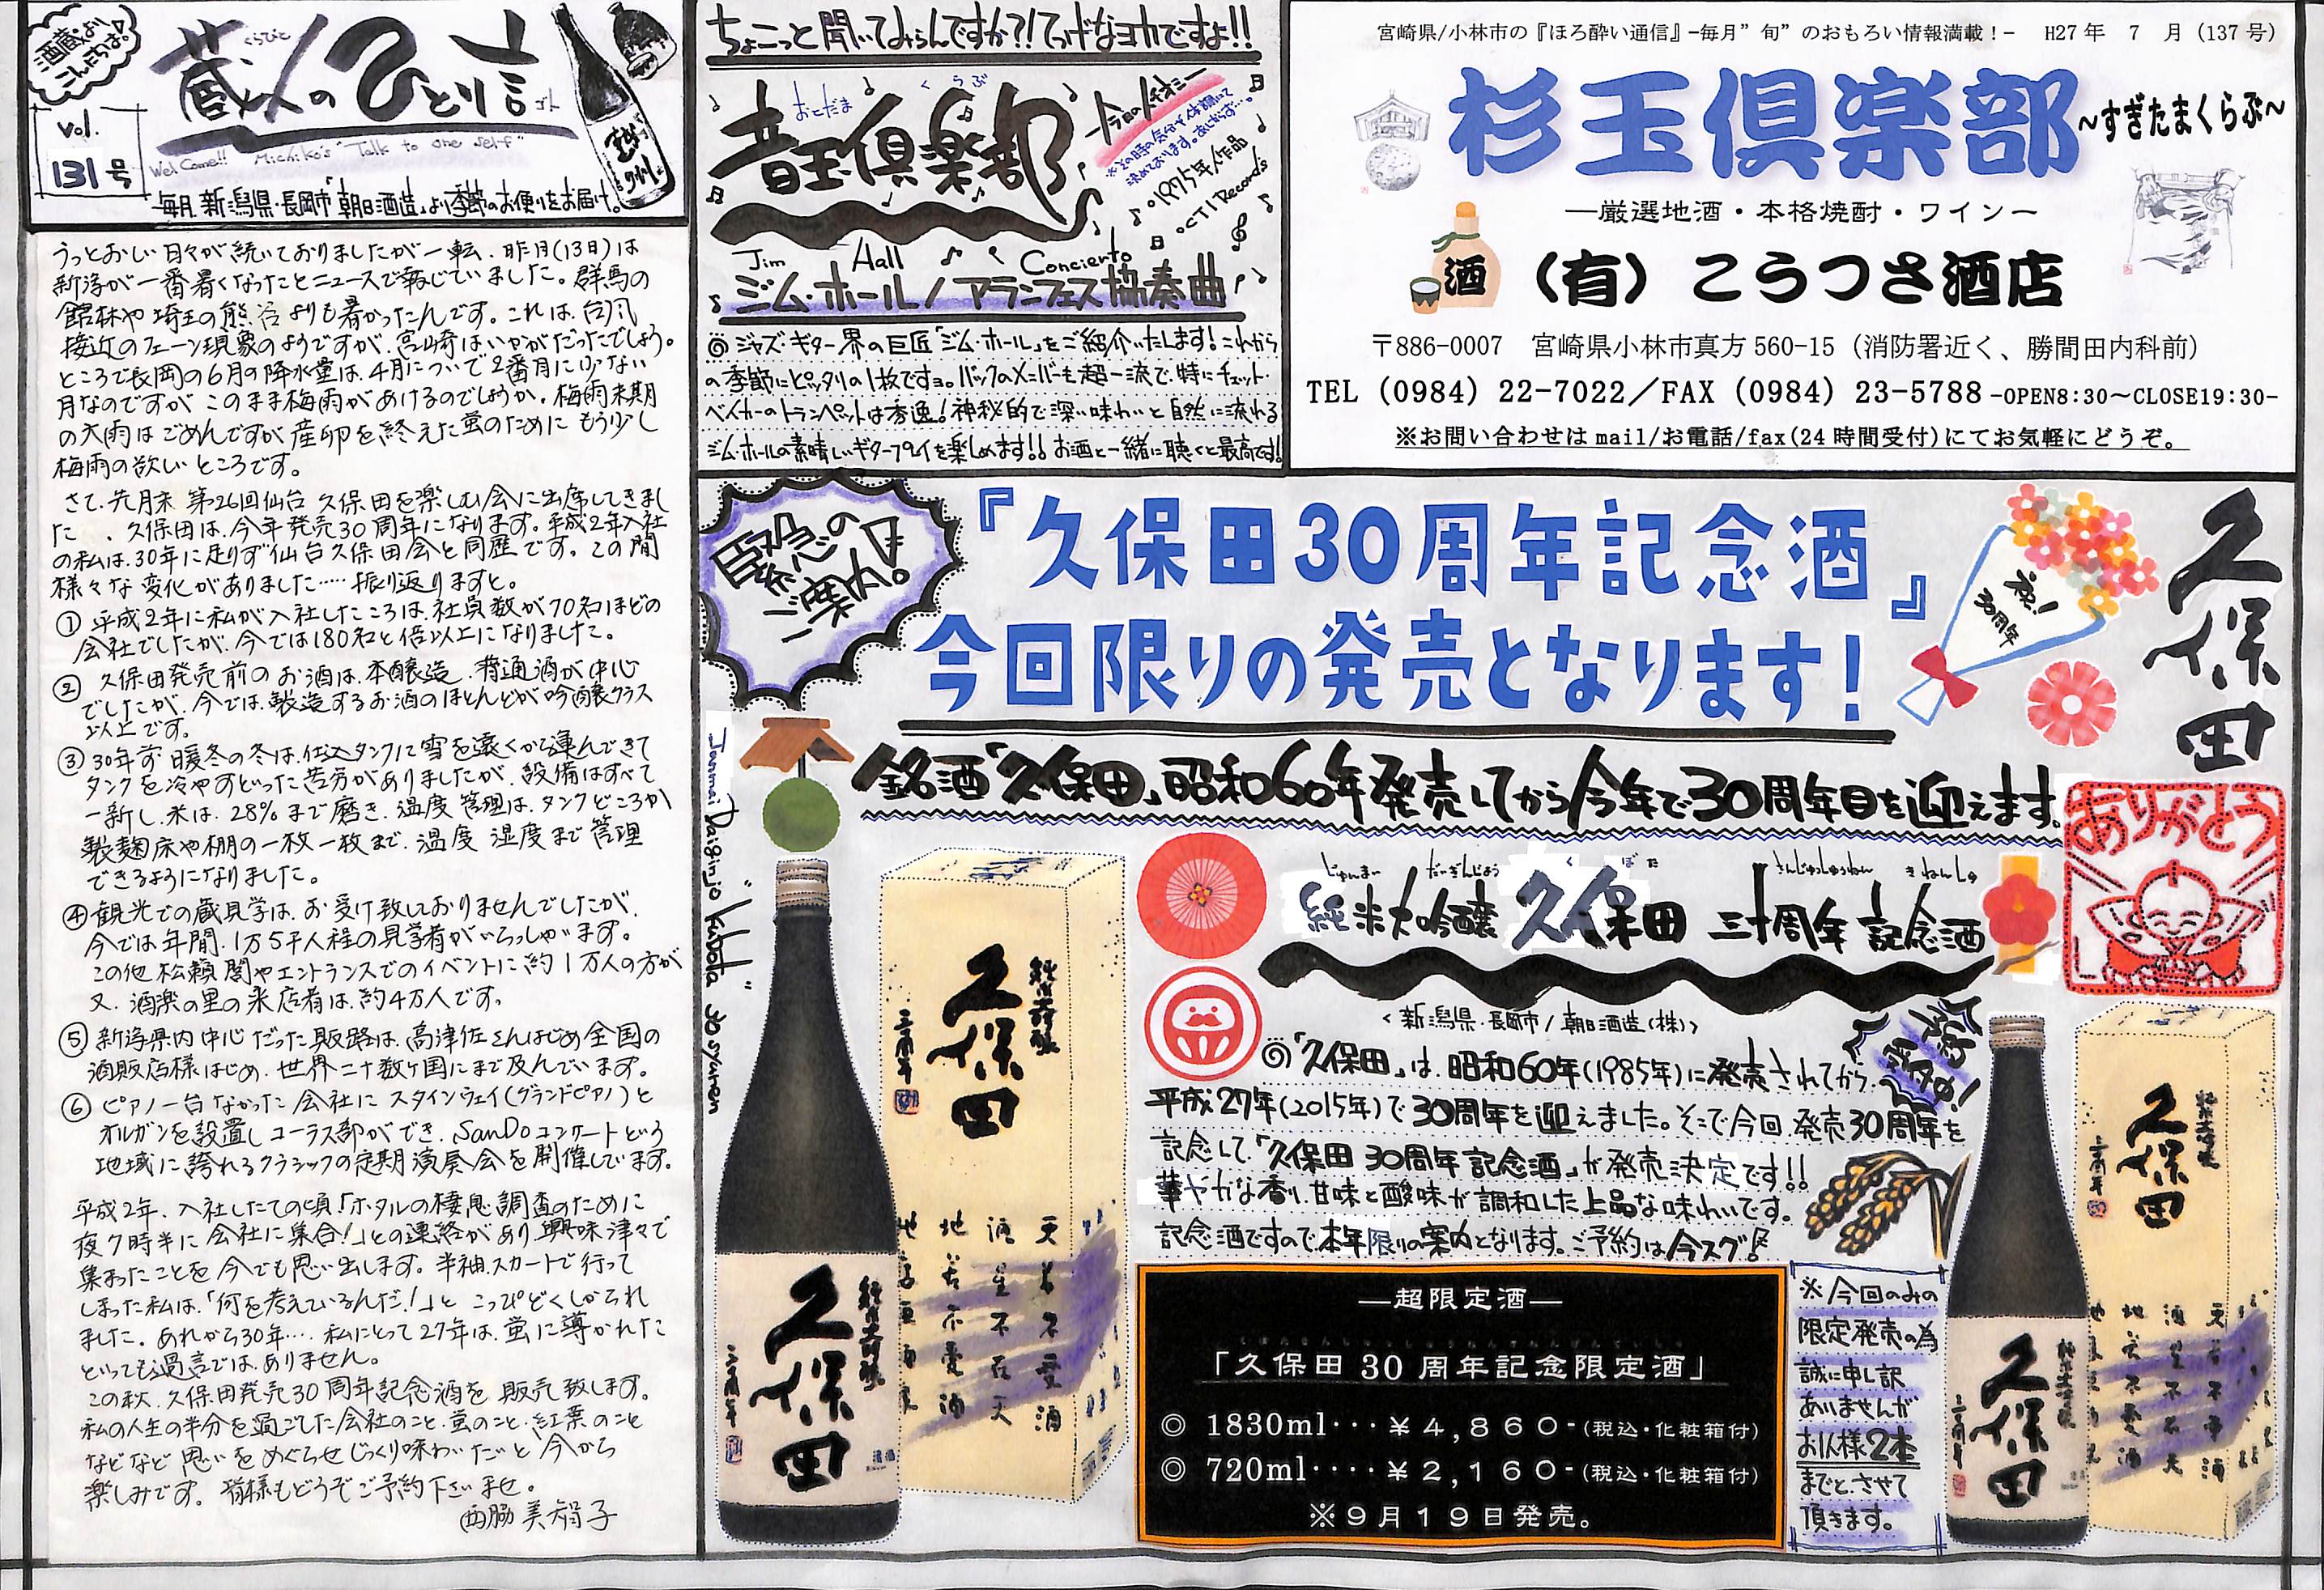 酒蔵よりこんにちは。
蔵人のひとり言
くらびと
ごと
vol.
131号
Welcome!! Michiko's "Talk to one self"
毎月 新潟県・長岡市「朝日酒造」より季節のお便りをお届け。
うっとおしい日々が続いておりましたが一転、昨日(13日)は
新潟が一番暑くなったことニュースで報じていました。群馬の
館林や埼玉の熊谷よりも暑かったんです。これは、台風
接近のフェーン現象のようですが、宮崎はいかがだったでしょう。
ところで長岡の6月の降水量は、4月について2番目に少ない
月なのですが このまま梅雨があけるのでしょうか。梅雨末期
の大雨はごめんですが 産卵を終えた蛍のために もう少し
梅雨の欲しいところです。
さて、先月末 第26回仙台 久保田を楽しむ会に出席してきまし
た 。久保田は、今年発売30周年になります。平成2年入社
の私は、30年に足りず仙台久保田会と同歴です。この間
様々な変化がありました……振り返りますと。
① 平成2年に私が入社したころは、社員数が70名ほどの
会社でしたが、今では180名と倍以上になりました。
② 久保田発売前のお酒は、本醸造、普通酒が中心
でしたが、今では、製造するお酒のほとんどが吟醸クラス
以上です。
③ 30年前 暖冬の冬は、仕込タンクに雪を遠くから運んできて
タンクを冷やすといった苦労がありましたが、設備はすべて
一新し、米は、28%まで磨き、温度管理は、タンクどころか
製麹床や棚の一枚一枚まで、温度 湿度まで管理
できるようになりました。
④ 観光での蔵見学は、お受け致しておりませんでしたが、
今では年間、1万5千人程の見学者がいらっしゃいます。
この他 松籟閣やエントランスでのイベントに約1万人の方が
又、酒楽の里の来店者は、約4万人です。
⑤ 新潟県内中心だった販路は、高津佐さんはじめ全国の
酒販店様はじめ、世界二十数ヶ国にまで及んでいます。
⑥ ピアノ一台なかった会社に スタインウェイ(グランドピアノ)と
オルガンを設置し コーラス部ができ、SanDoコンサートという
地域に誇れるクラシックの定期演奏会を開催しています。
平成2年、入社したての頃「ホタルの棲息調査のために
夜7時半に会社に集合!」との連絡があり、興味津々で
集まったことを今でも思い出します。半袖、スカートで行って
しまった私は、「何を考えているんだ!」と こっぴどくしかられ
ました。あれから30年…、私にとって27年は、蛍に導かれた
といっても過言では、ありません。
この秋、久保田発売30周年記念酒を 販売致します。
私の人生の半分を過ごした会社のこと、蛍のこと、紅葉のこと
などなど 思いをめぐらせじっくり味わいたいと 今から
楽しみです。皆様もどうぞご予約下さいませ。
西脇 美智子
ちょこっと聞いてみらんですか?!てげなヨカですよ!!
音玉倶楽部
おとだま
くらぶ
今月のイチオシ
※その時の気分や体調にて
決めております。あしからず…。
・1975年作品
・CTI Records
Jim Hall Concierto
ジム・ホール/アランフェス協奏曲
◎ジャズ・ギター界の巨匠「ジム・ホール」をご紹介いたします!これから
の季節にピッタリの1枚ですヨ。バックのメンバーも超一流で、特にチェット・
ベイカーのトランペットは秀逸!神秘的で深い味わいと自然に流れる
ジム・ホールの素晴しいギタープレイを楽しめます!!お酒と一緒に聴くと最高です!
宮崎県/小林市の『ほろ酔い通信』-毎月”旬”のおもろい情報満載!- H27年 7 月(137号)
杉玉倶楽部
~すぎたまくらぶ~
―厳選地酒・本格焼酎・ワイン―
酒
(有)こうつさ酒店
〒886-0007 宮崎県小林市真方560-15(消防署近く、勝間田内科前)
TEL(0984)22-7022/FAX(0984)23-5788-OPEN8:30~CLOSE19:30-
※お問い合わせはmail/お電話/fax(24時間受付)にてお気軽にどうぞ。
緊急のご案内!
『久保田30周年記念酒』
今回限りの発売となります!
祝!30周年
久保田
銘酒「久保田」昭和60年発売してから今年で30周年目を迎えます。
ありがとう
Junmai Daiginjo "Kubota" 30 syunen
じゅんまい だいぎんじょう くぼた さんじゅっしゅうねん きねんしゅ
純米大吟醸 久保田 三十周年 記念酒
<新潟県・長岡市/朝日酒造(株)>
◎「久保田」は、昭和60年(1985年)に発売されてから、
平成27年(2015年)で30周年を迎えました。そこで今回、発売30周年を
記念して、「久保田 30周年記念酒」が発売決定です!!
華やかな香り、甘味と酸味が調和した上品な味わいです。
記念酒ですので、本年限りの案内となります。ご予約は今スグ!
久保田
純米大吟醸
三十周年
久保田
純米大吟醸
三十周年
―超限定酒―
「久保田30周年記念限定酒」
◎ 1830ml・・・¥4,860-(税込・化粧箱付)
◎ 720ml・・・・¥2,160-(税込・化粧箱付)
※9月19日発売。
※今回のみの
限定発売の為
誠に申し訳
ありませんが
お1人様2本
までとさせて
頂きます。
久保田
純米大吟醸
三十周年
久保田
純米大吟醸
三十周年